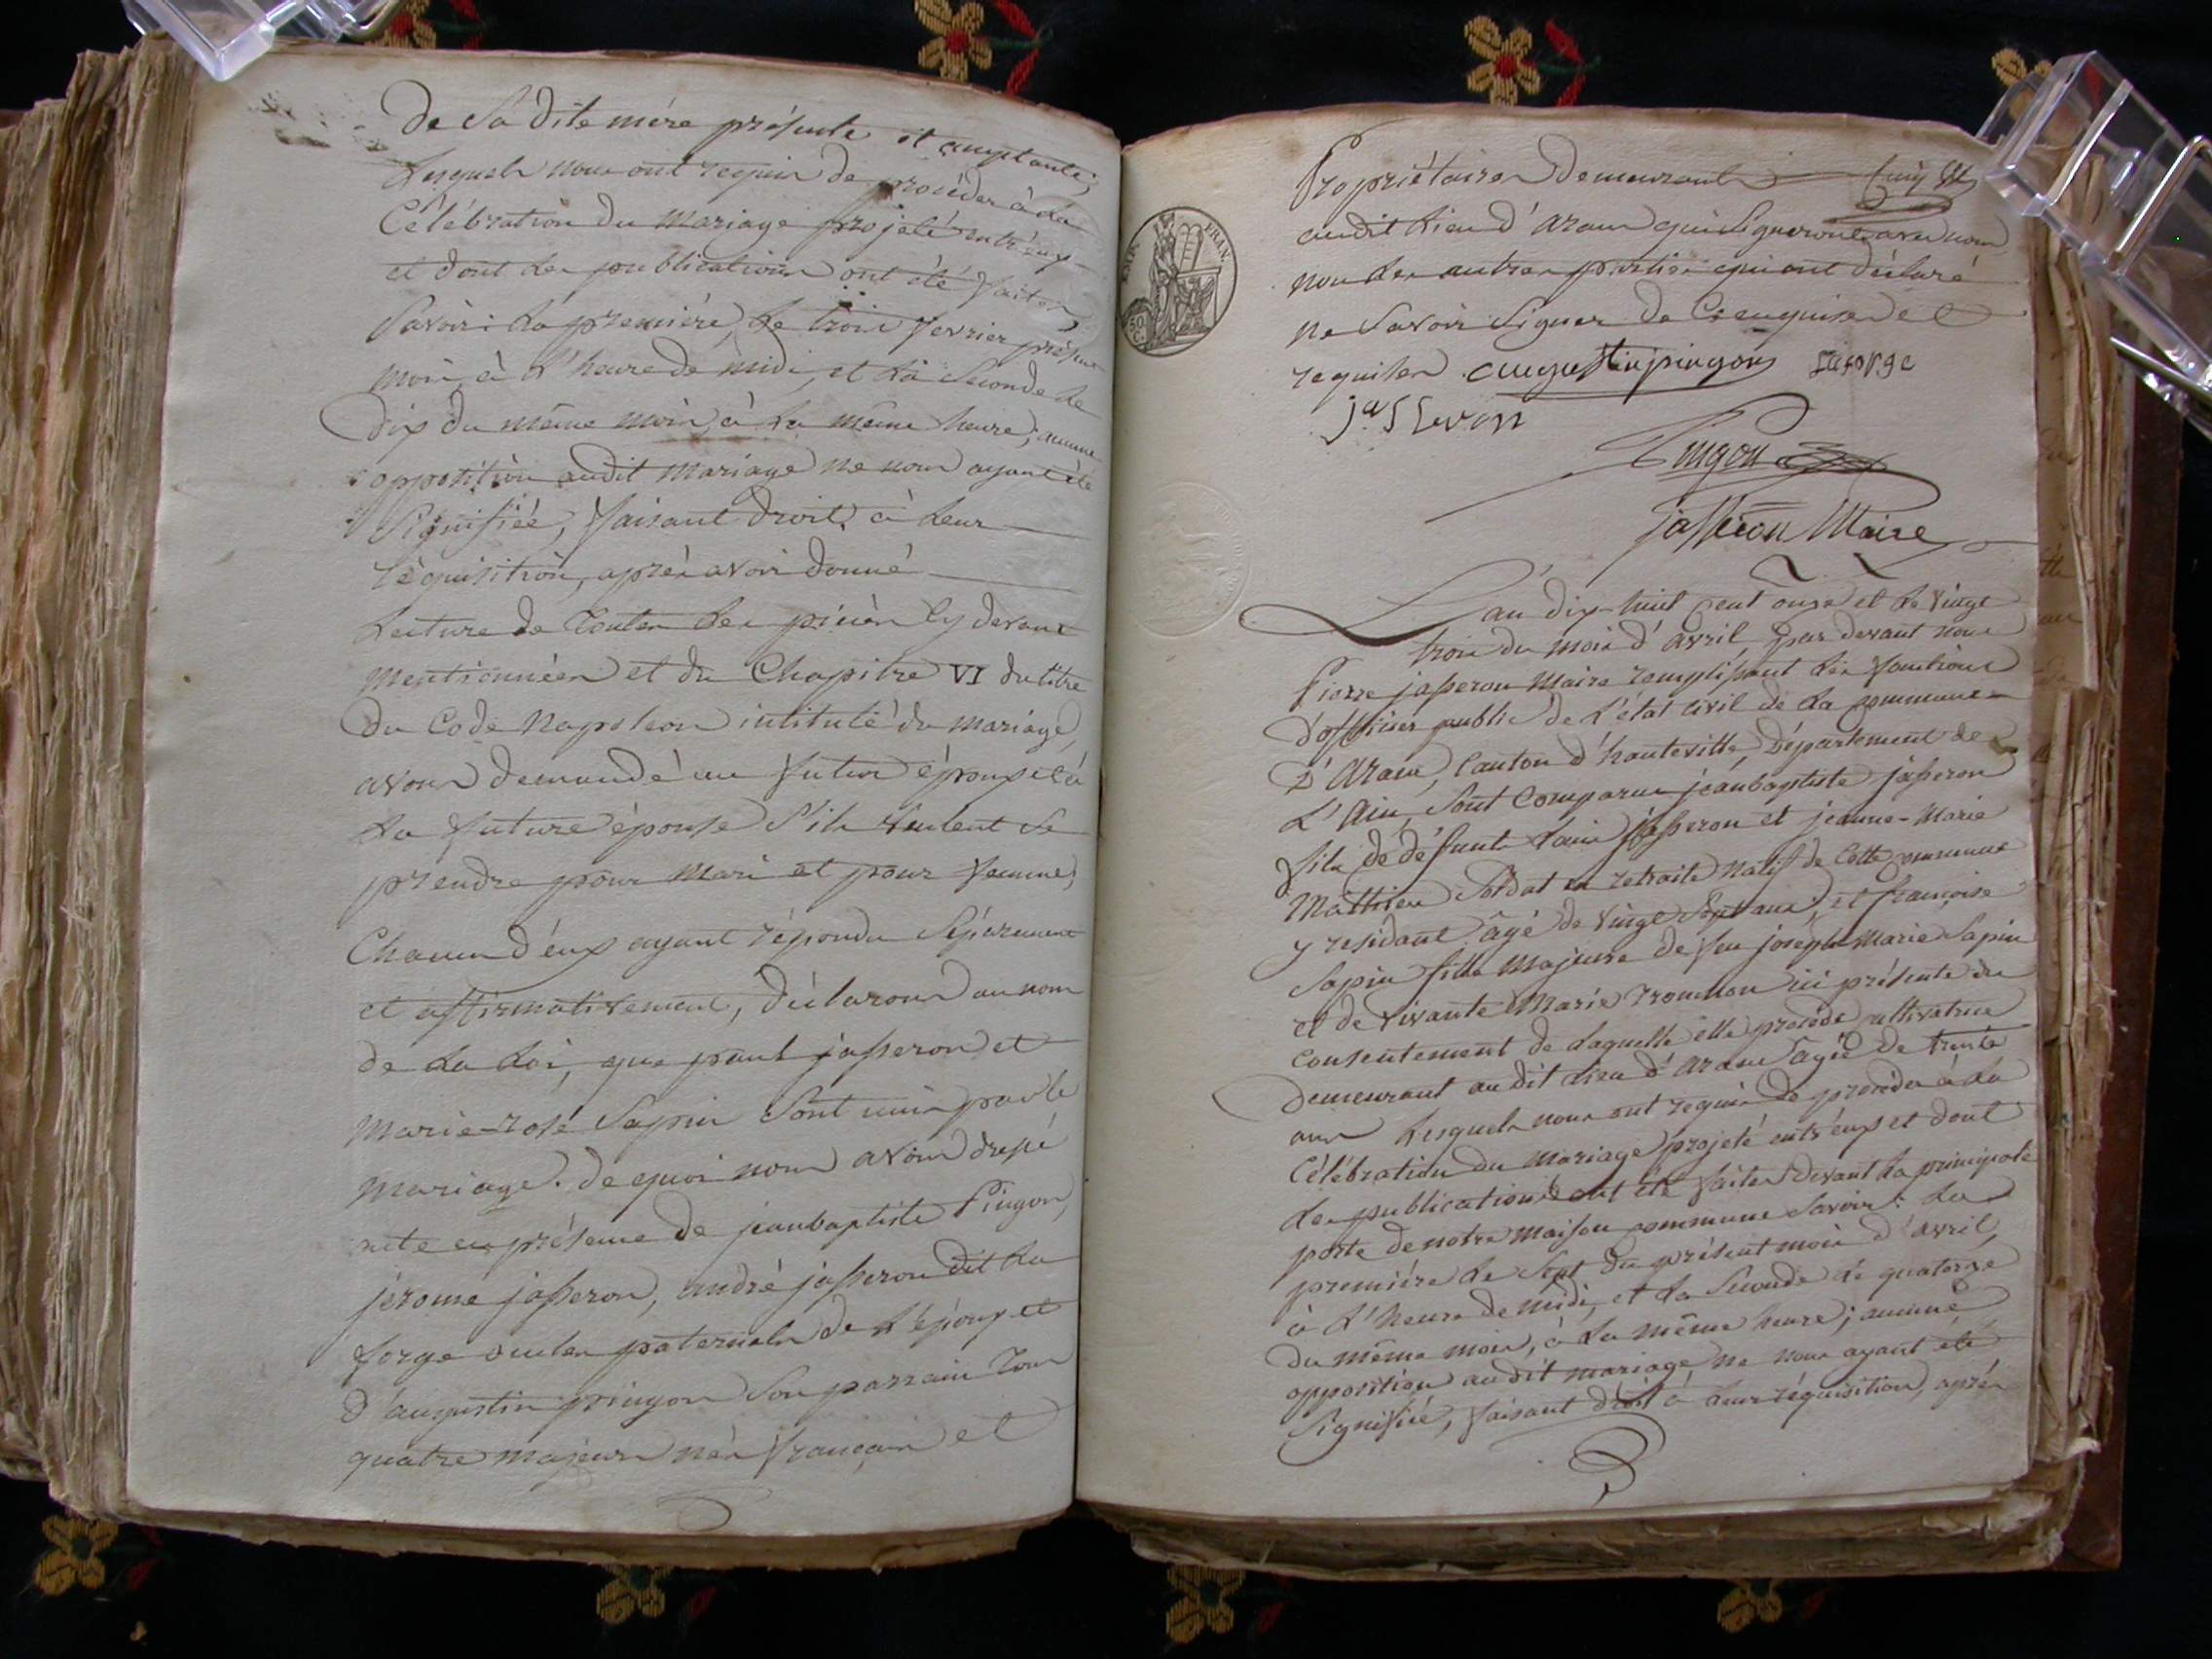 De Sa Dite mère présente et acceptante;
Lesquels nous ont requis de procéder à la
Célébration du mariage projeté entr'eux
et dont les publications ont été faites
Savoir: la première, le trois fevrier présent
mois, à l'heure de midi, et la Seconde le
Dix du même mois, à la même heure; aucune
opposition audit mariage ne nous ayant été
Signifiée, faisant droit à leur
réquisition, après avoir donné
Lecture de toutes les pièces Cy devant
mentionnées et du Chapitre VI du titre
du Code Napoleon intitulé du mariage,
avons demandé au futur époux et à
la future épouse S'ils veulent Se
prendre pour mari et pour femme,
Chacun d'eux ayant répondu Séparement
et affirmativement, déclarons au nom
de la Loi, que paul jasseron et
marie-rose Sapin Sont unis par le
mariage. de quoi nous avons dressé
acte en présence de jeanbaptiste Pingon,
jerome jasseron, andré jasseron dit la
forge oncles paternels de l'époux et
d'augustin pingon Son parrain Tous
quatre majeurs nés français et
EMP. FRAN.
50 C.
Propriétaires Demeurant
audit Lieu d'aranc qui Signeront avec nous
non les autres parties qui ont déclaré
ne Savoir Signer de Ce enquises et
requises augustin pingon laforge
Pingon
jasseron Maire
L'an dix-huit Cent onze et le vingt
trois du mois d'avril, par devant nous
Pierre jasseron maire remplissant les fonctions
d'officier public de l'état civil de la commune
D'Aranc, Canton d'hauteville, Département de
L'Ain, Sont Comparus jeanbaptiste jasseron
fils de défunt Louis jasseron et jeanne-Marie
Mathieu Soldat en retraite natif de Cette commune
y residant âgé de vingt Sept ans, et françoise
Sapin fille majeure de feu joseph-Marie Sapin
et de vivante Marie ici présente du
consentement de laquelle elle procède cultivatrice
Demeurant au dit Lieu d'Aranc âgée de trente
ans Lesquels nous ont requis de procéder à la
Célébration du mariage projeté entr'eux et dont
les publications ont été faites devant la principale
porte de notre maison commune Savoir: la
première le Sept du présent mois d'avril,
à l'heure de midi, et la Seconde le quatorze
du même mois, à la même heure; aucune
opposition audit mariage ne nous ayant été
Signifiée, faisant droit à leur réquisition, après